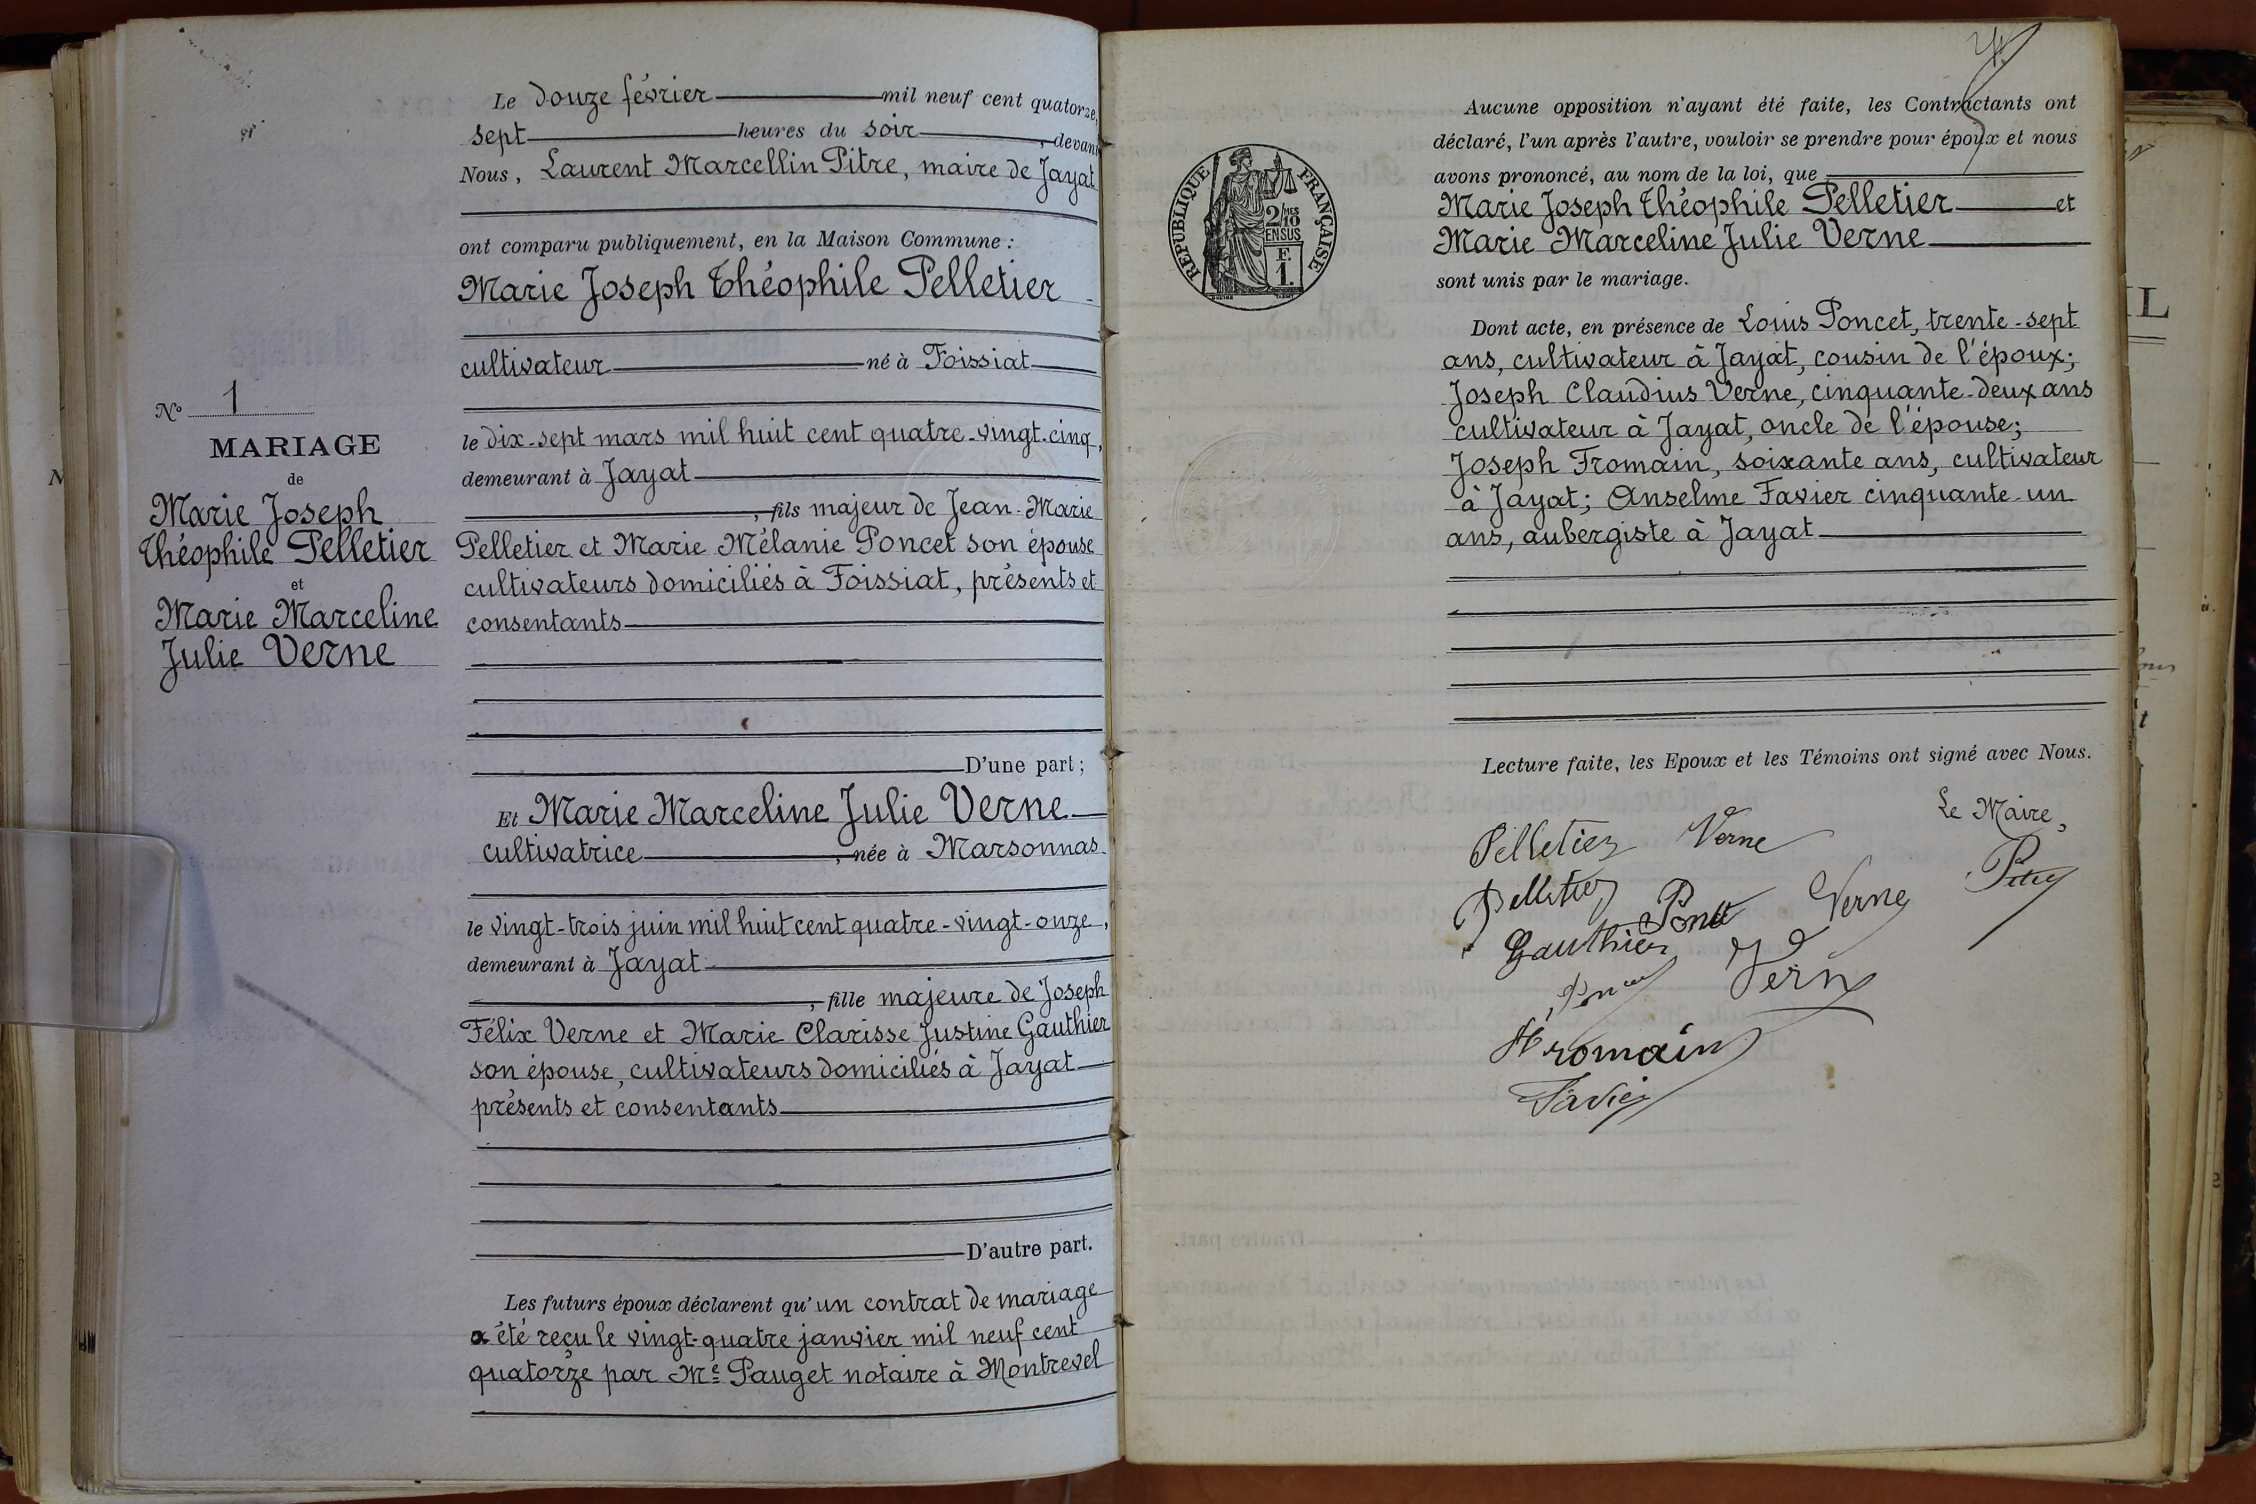 Le douze février mil neuf cent quatorze,
sept heures du soir, devant
Nous, Laurent Marcellin Pitre, maire de Jayat
ont comparu publiquement, en la Maison Commune :
Marie Joseph Théophile Pelletier
cultivateur né à Foissiat
le dix-sept mars mil huit cent quatre-vingt-cinq,
demeurant à Jayat
, fils majeur de Jean-Marie
Pelletier et Marie Mélanie Poncet son épouse
cultivateurs domiciliés à Foissiat, présents et
consentants
D'une part ;
Et Marie Marceline Julie Verne
cultivatrice, née à Marsonnas
le vingt-trois juin mil huit cent quatre-vingt-onze,
demeurant à Jayat
, fille majeure de Joseph
Félix Verne et Marie Clarisse Justine Gauthier
son épouse, cultivateurs domiciliés à Jayat
présents et consentants
D'autre part.
Les futurs époux déclarent qu'un contrat de mariage
a été reçu le vingt-quatre janvier mil neuf cent
quatorze par Me Pauget notaire à Montrevel
No 1
MARIAGE
de
Marie Joseph
Théophile Pelletier
et
Marie Marceline
Julie Verne
RÉPUBLIQUE FRANÇAISE
2/10 MES
EN SUS
F.
1.
Aucune opposition n'ayant été faite, les Contractants ont
déclaré, l'un après l'autre, vouloir se prendre pour époux et nous
avons prononcé, au nom de la loi, que
Marie Joseph Théophile Pelletier et
Marie Marceline Julie Verne
sont unis par le mariage.
Dont acte, en présence de Louis Poncet, trente-sept
ans, cultivateur à Jayat, cousin de l'époux;
Joseph Claudius Verne, cinquante-deux ans
cultivateur à Jayat, oncle de l'épouse;
Joseph Fromain, soixante ans, cultivateur
à Jayat; Anselme Favier cinquante-un
ans, aubergiste à Jayat
Lecture faite, les Epoux et les Témoins ont signé avec Nous.
Le Maire,
Pelletier Verne
Pitre
Pelletier Poncet Verne
Gauthier
Verne
Poncet
Fromain
Favier